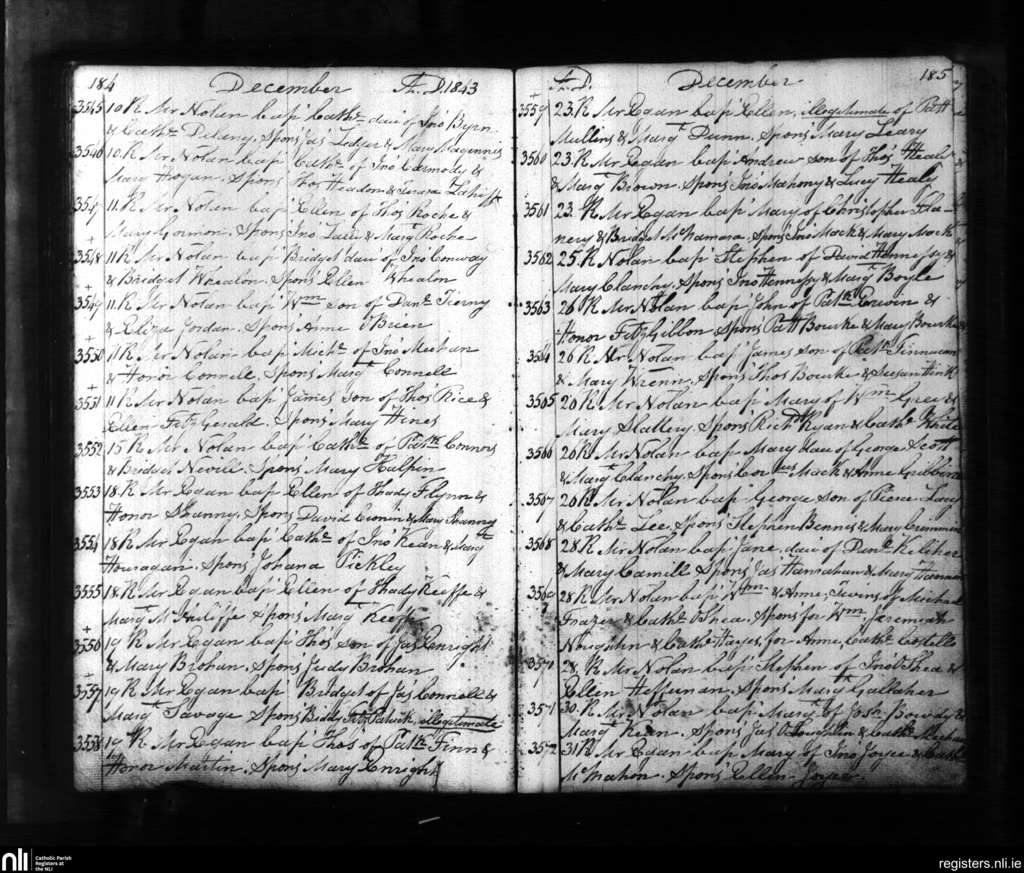 184 December A.D. 1843
3545 10. R. Mr Nolan bap' Cath: dau of Jno Byrn
& Cathe Delany, Spons Jas Ledger & Mary Magennis
3546 10. R. Mr Nolan bap' Cathe of Jno Carmody &
Mary Hogan. Spons Thos Headon &
3547 11. R. Mr Nolan bap' Ellen of Thos Roche &
Mary Gorman. Spons Jno & Margt Roche
3548 11. R. Mr Nolan bap' Bridget dau of Jno Conway
& Bridget Whealon Spons Ellen Whealon
3549 11. R. Mr Nolan bap' Wm son of Danl Tierny
& Eliza Jordan. Spons Anne O'Brien
3550 11. R. Mr Nolan bap' Michl of Jno Meehan
& Honor Connell, Spons Margt Connell
3551 11. R. Mr Nolan bap' James son of Thos Rice &
Ellen FitzGerald. Spons Mary Hines
3552 15. R. Mr Nolan bap' Cathe of Patk Connors
& Bridget Nevill. Spons Mary Halpin
3553 18. R. Mr Egan bap' Ellen of Thady Flynn &
Honor Shanny, Spons David Cronin & Mary Shanny
3554 18 R. Mr Egan bap' Cathe of Jno Kean & Margt
Houragan. Spons Johana Tickley
3555 18. R. Mr Egan bap' Ellen of Thady Keeffe &
Margt McAuliffe & spons Margt Keeffe
3556 19 R. Mr Egan bap' Thos son of Jas Enright
& Mary Brohan. Spons Judy Brohan
3557 19 R. Mr Egan bap' Bridget of Jas Connell &
Margt Savage Spons Biddy FitzPatrick, illegitimate
3558 19 R. Mr Egan bap' Thos of Patk Finn &
Honor Martin. Spons Mary Enright
A.D. December 185
3559 23. R. Mr Egan bap' Ellen, illegitimate of Patt
Mullins & Margt Dunn. Spons Mary Leary
3560 23. R. Mr Egan bap' Andrew son of Thos Healy
& Margt Brown. Spons Jno Mahony & Lucy Healy
3561 23. R. Mr Egan bap' Mary of Christopher Fla-
nery & Bridget McNamara. Spons Jno Mack & Mary Mack
3562 25. R. Nolan bap' Stephen of David Hennessy &
Mary Clanchy. Spons Jno Hennessy & Margt Boyle
3563 26. R. Mr Nolan bap' John of Patk &
Honor FitzGibbon Spons Patt Bourke & Mary Bourke
3564 26 R. Mr Nolan bap' James son of Patk Finnucan
& Mary Wrenn. Spons Thos Bourke & Susan
3565 26 R. Mr Nolan bap' Mary of Wm &
Mary Slattery. Spons Richd Ryan & Cathe White
3566 26 R. Mr Nolan bap' Mary dau of George Scott
& Margt Clanchy. Spons Corlus Mack & Anne
3567 26 R. Mr Nolan bap' George son of Pierce Lacy
& Cathe Lee. Spons Stephen Bennis & Mary
3568 28. R. Mr Nolan bap' Jane, dau of Danl Keliher
& Mary Spons Jas Hanrahan & Mary
3569 28. R. Mr Nolan bap' Wm & Anne, twins of Michael
Frazer & Cathe O'Shea. Spons for Wm. Jeremiah
Noughtin & Cathe Hayes, for Anne, Cathe Costello
3570 28. R. Mr Nolan bap' Stephen of Jno O'Shea &
Ellen Heffernan. Spons Margt Gallaher
3571 30. R. Mr Nolan bap' Margt of Josh Bowdy &
Margt Kean. Spons Jas O'Loughlin & Cathe
3572 31 R. Mr Egan bap' Mary of Jno Joyce & Cathe
McMahon. Spons Ellen Joyce
nli Catholic Parish
Registers at
the NLI
registers.nli.ie